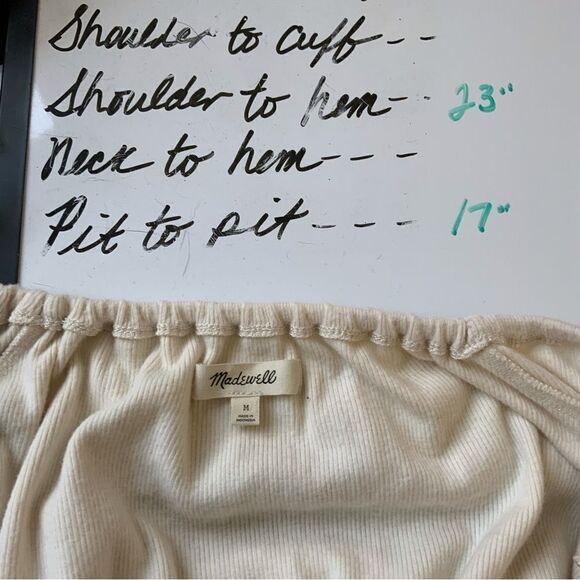 Shoulder to cuff - -
Shoulder to hem - - 23"
Neck to hem - - - -
Pit to pit - - - - 17"
Madewell
M
MADE IN
INDONESIA